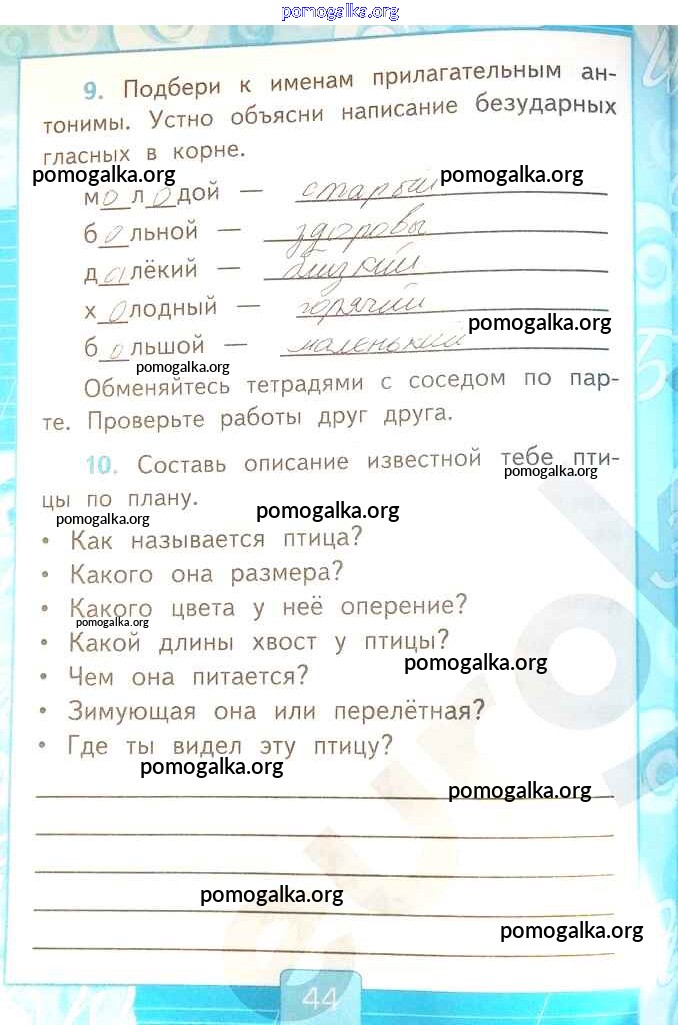 pomogalka.org
9. Подбери к именам прилагательным ан-
тонимы. Устно объясни написание безударных
гласных в корне.
pomogalka.org pomogalka.org
молодой — старый
больной — здоровы
далёкий — близкий
холодный — горячий
pomogalka.org
большой — маленький
pomogalka.org
Обменяйтесь тетрадями с соседом по пар-
те. Проверьте работы друг друга.
10. Составь описание известной тебе пти-
pomogalka.org
цы по плану.
pomogalka.org pomogalka.org
• Как называется птица?
• Какого она размера?
• Какого цвета у неё оперение?
pomogalka.org
• Какой длины хвост у птицы?
pomogalka.org
• Чем она питается?
• Зимующая она или перелётная?
• Где ты видел эту птицу?
pomogalka.org
pomogalka.org
pomogalka.org
pomogalka.org
44